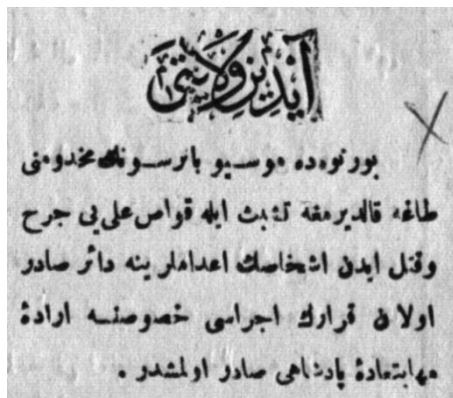 آیدین ولایتی
بورنوه‌ده موسیو باترسونك مخدومنی
طاغه قالدیرمغه تشبث ایله قواص علی‌یی جرح
وقتل ایدن اشخاصك اعداملرینه دائر صادر
اولان قرارك اجراسی خصوصنـه ارادۀ
مهابتعادۀ پادشاهی صادر اولمشدر .